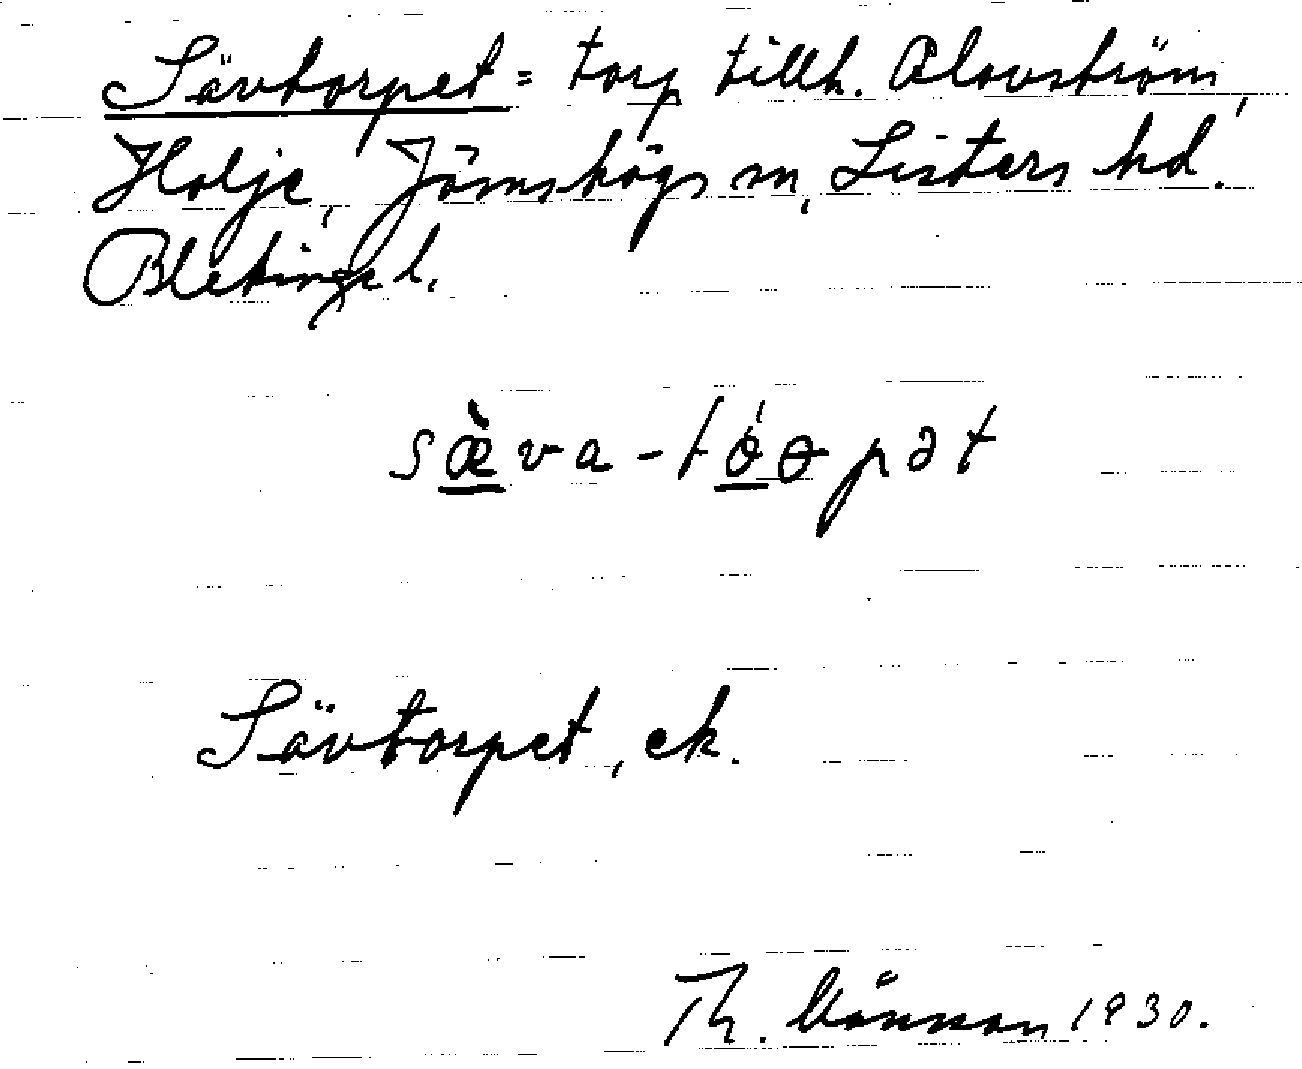 Sävtorpet = torp tillh. Olovström,
Holje, Jämshögs sn, Listers hd.
Blekinge l.
sæ̀va-tórpət
Sävtorpet, ek.
Th. 1930.